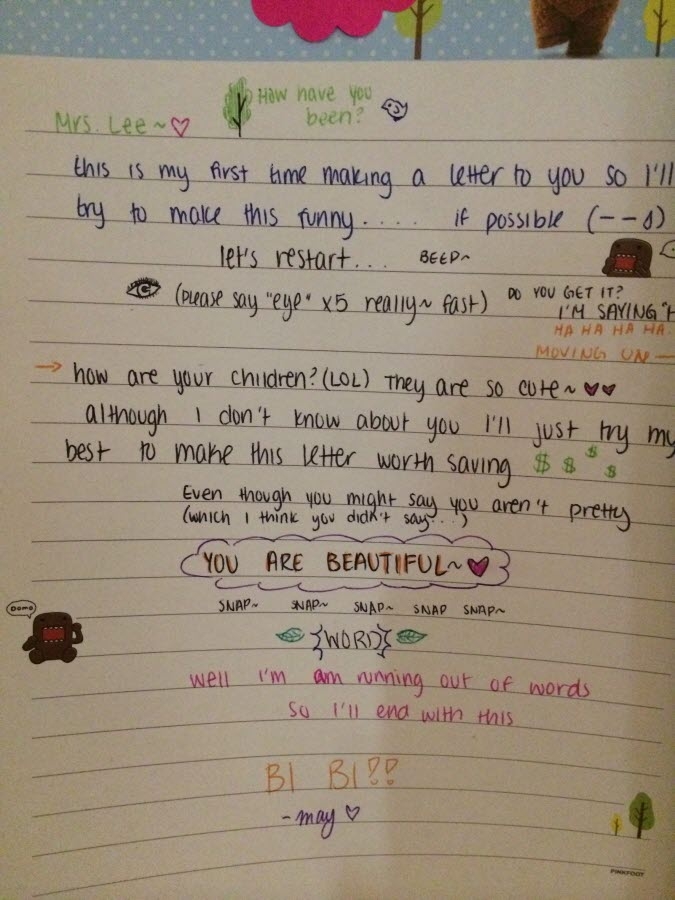 How have you
been?
Mrs. Lee~♡
this is my first time making a letter to you so I'll
try to make this funny..... if possible (--;)
let's restart... BEEP~
(please say "eye" x5 really~ fast) DO YOU GET IT?
I'M SAYING "H
HA HA HA HA.
MOVING ON —
→ how are your children? (LOL) They are so cute~ ♥♥
although I don't know about you I'll just try my
best to make this letter worth saving $ $ $ $
Even though you might say you aren't pretty
(which I think you didn't say...)
YOU ARE BEAUTIFUL~ ♥
SNAP~ SNAP~ SNAP~ SNAP SNAP~
Domo
{WORD}
well I'm am running out of words
so I'll end with this
BI BI!?
-may ♡
PINKFOOT